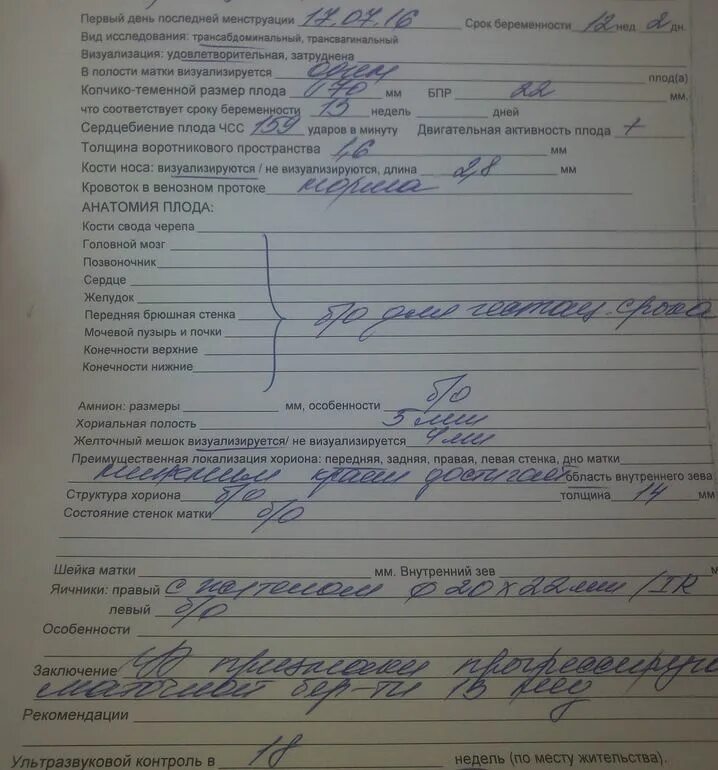 Первый день последней менструации 17.07.16 Срок беременности 12 нед 2 дн.
Вид исследования: трансабдоминальный, трансвагинальный
Визуализация: удовлетворительная, затруднена
В полости матки визуализируется один плод(а)
Копчико-теменной размер плода 70 мм БПР 22 мм,
что соответствует сроку беременности 13 недель дней
Сердцебиение плода ЧСС 159 ударов в минуту Двигательная активность плода +
Толщина воротникового пространства 1,6 мм
Кости носа: визуализируются / не визуализируются, длина 2,8 мм
Кровоток в венозном протоке норма
АНАТОМИЯ ПЛОДА:
Кости свода черепа
Головной мозг
Позвоночник
Сердце
Желудок
Передняя брюшная стенка б/о для гестац. срока
Мочевой пузырь и почки
Конечности верхние
Конечности нижние
Амнион: размеры мм, особенности б/о
Хориальная полость 5 мм
Желточный мешок визуализируется/ не визуализируется 4 мм
Преимущественная локализация хориона: передняя, задняя, правая, левая стенка, дно матки
нижним краем достигает область внутреннего зева
Структура хориона б/о толщина 14 мм
Состояние стенок матки б/о
Шейка матки мм. Внутренний зев м
Яичники: правый с желтелом 20х22мм /IR
левый б/о
Особенности
Заключение признаки прогрессирую
маточной бер-ти 13 нед
Рекомендации
Ультразвуковой контроль в 18 недель (по месту жительства).